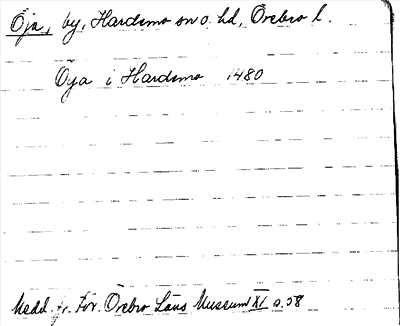 Öja, by, Hardemo sn o. hd, Örebro l.
Öya i Hardemo 1480
Medd. fr. För. Örebro Läns Museum XI s. 58